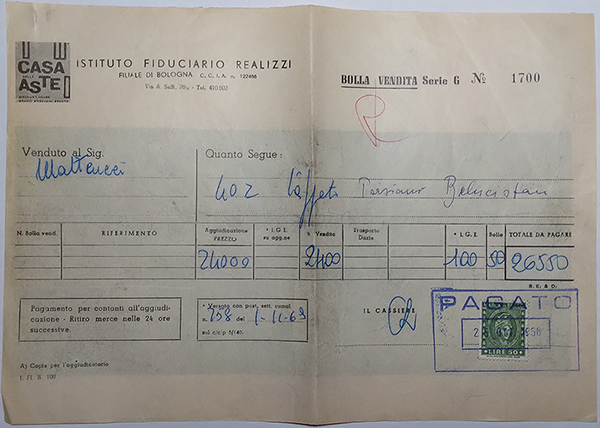 CASA
DELLE
ASTE
ISTITUTO FIDUCIARIO REALIZZI
FILIALE DI BOLOGNA C. C. I. A. n. 122466
Via A. Saffi,
Tel. 410.603
BOLLA VENDITA Serie G № 1700
Venduto al Sig.
Matteucci
Quanto Segue:
n° 2 Tappeti Persiano Belucistan
N. Bolla vend.
RIFERIMENTO
Aggiudicazione PREZZO
I.G.E. su agg.ne
Vendita
Trasporto Dazio
I.G.E.
Bollo
TOTALE DA PAGARE
24000 2400 100 50 26550
R. E. & O.
Pagamento per contanti all'aggiudi-
cazione - Ritiro merce nelle 24 ore
successive.
Versato con post. sett. cumul.
n. 758 del 1-11-63
sul c/c/p
IL CASSIERE
PAGATO
LIRE 50
A) Copia per l'aggiudicatario